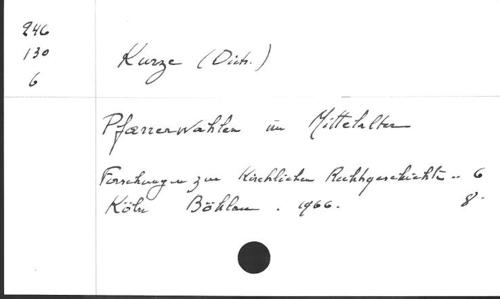 246
130
6
Kurze (Diet.)
Pfarrerwahlen im Mittelalter
Forschungen zur Kirchlichen Rechtsgeschichte .. 6
Köln Böhlau . 1966. 8°